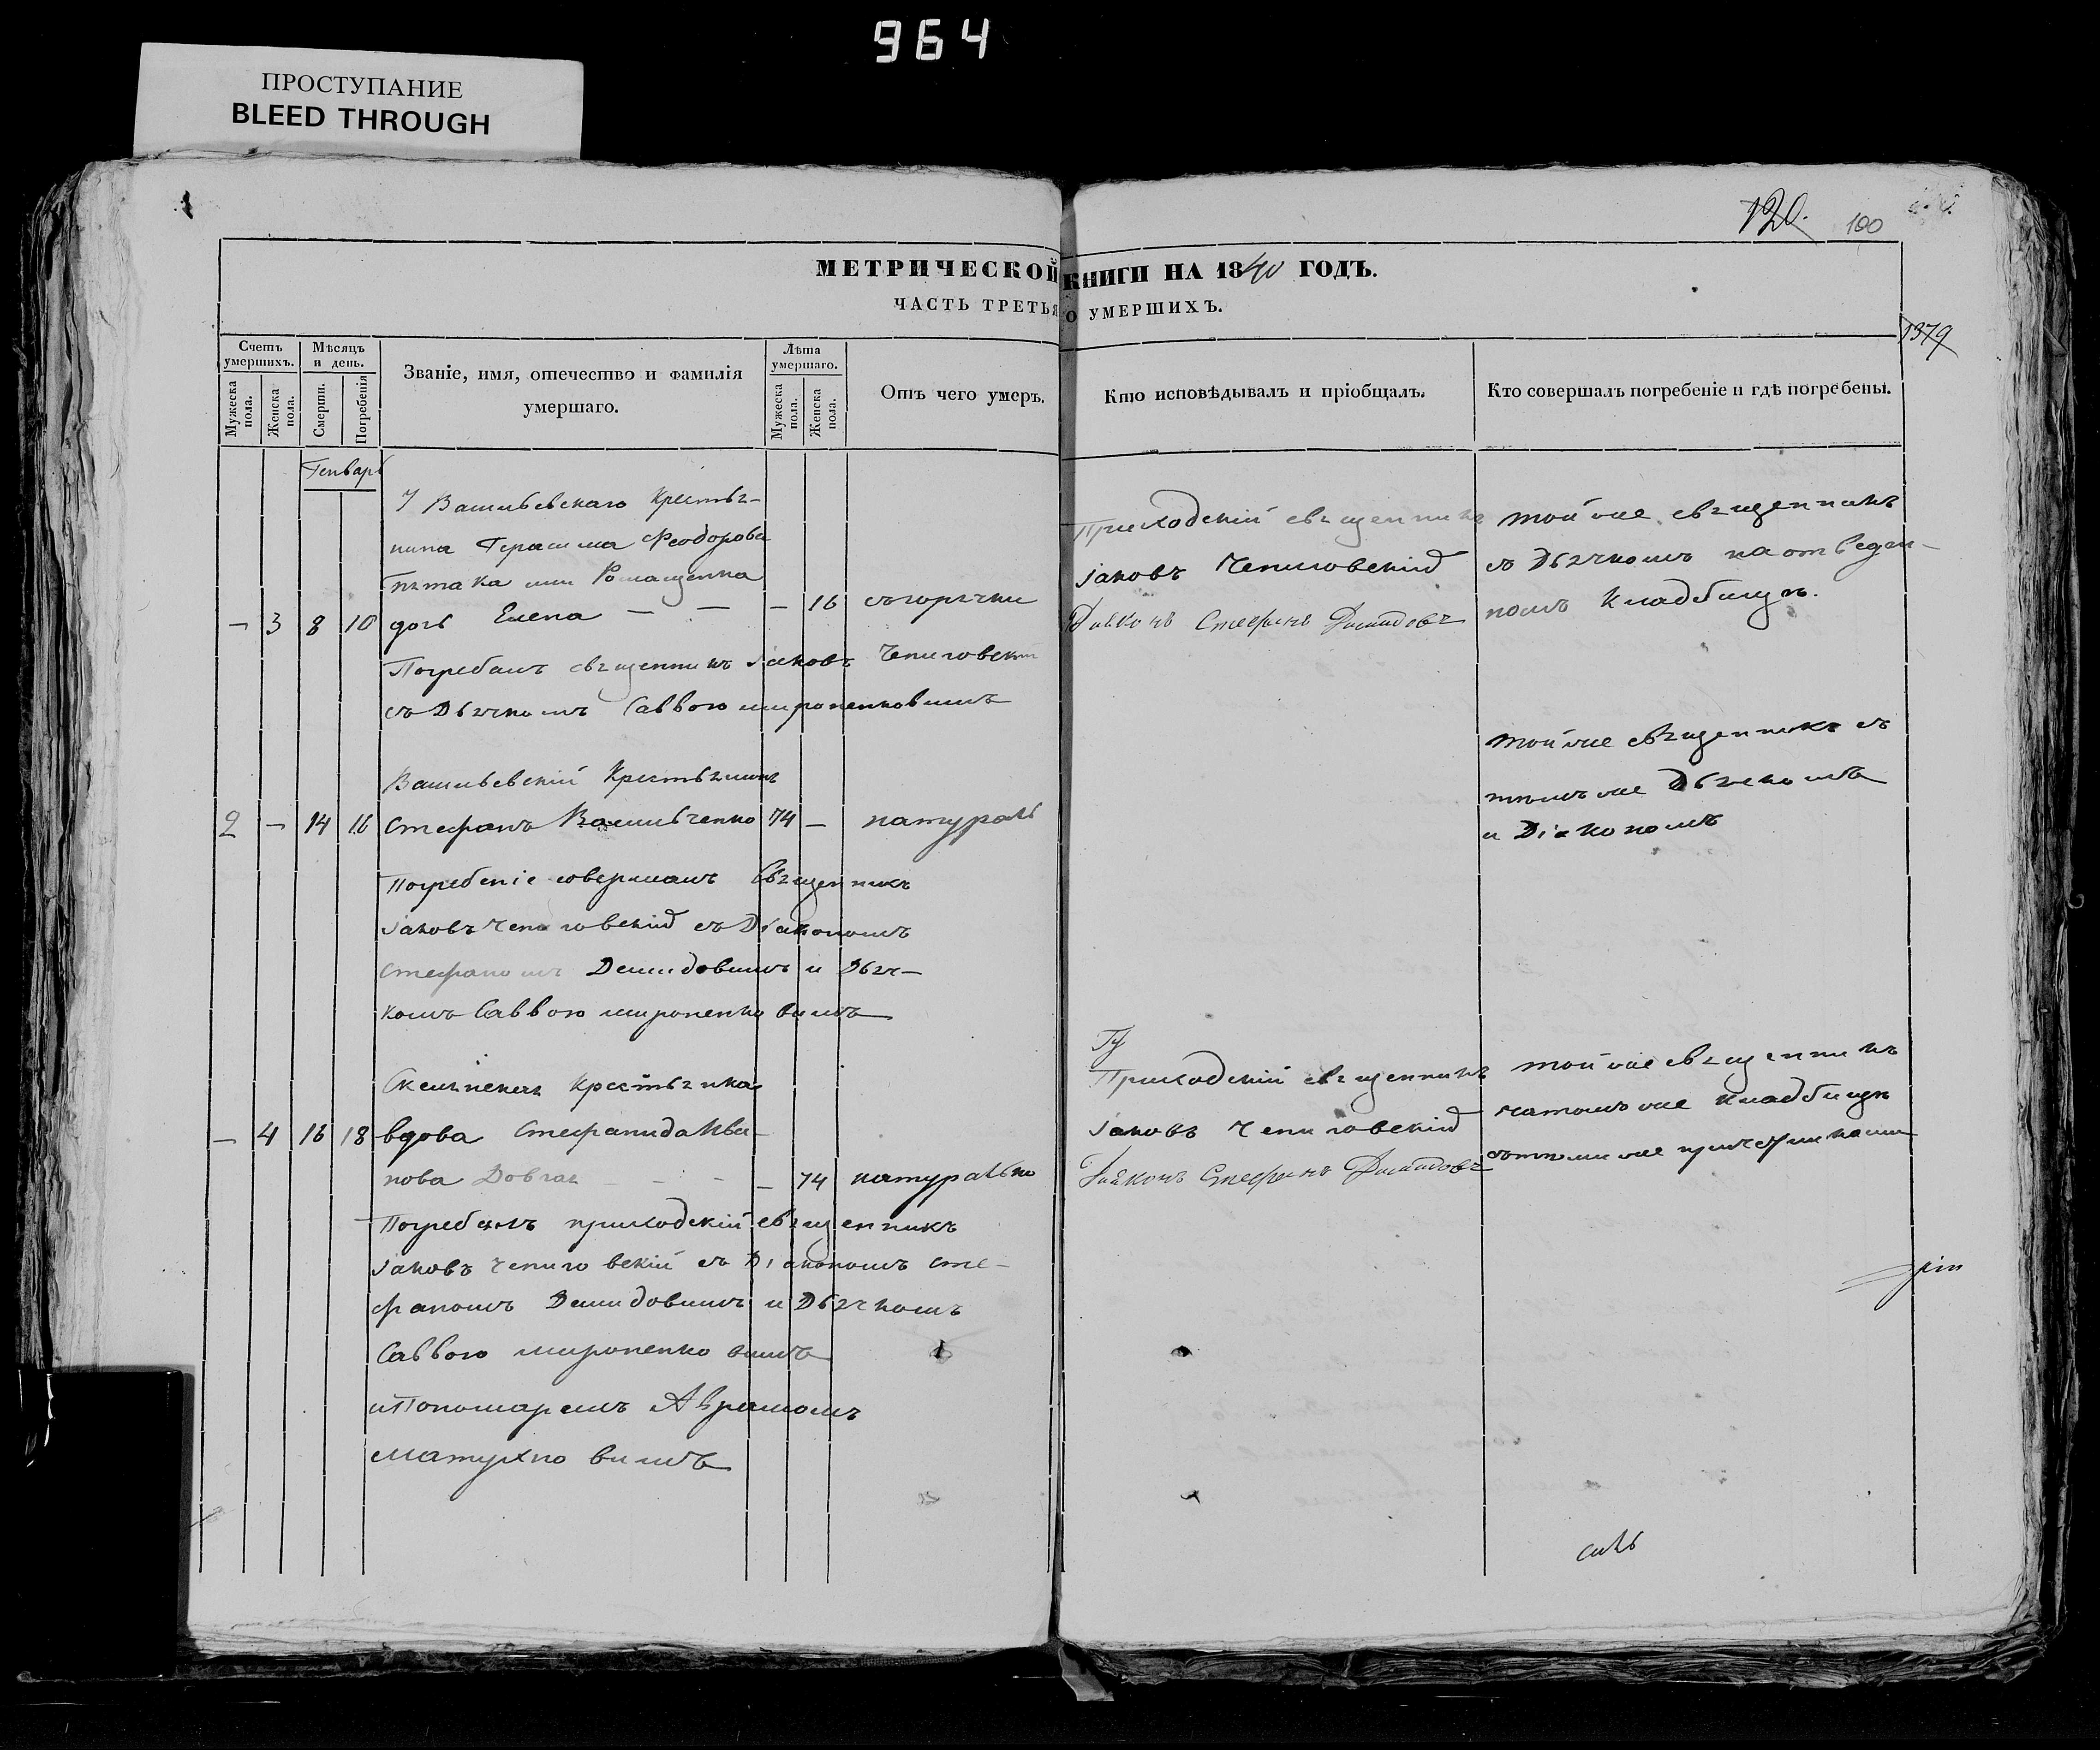 964
ПРОСТУПАНИЕ
BLEED THROUGH
120. 100
МЕТРИЧЕСКОЙ КНИГИ НА 1840 ГОДЪ.
ЧАСТЬ ТРЕТЬЯ О УМЕРШИХЪ.
1379
Счетъ умершихъ.
Мужеска пола.
Женска пола.
Мѣсяцъ и день.
Смерти.
Погребенія
Званіе, имя, отечество и фамилія умершаго.
Лѣта умершаго.
Мужеска пола.
Женска пола.
Отъ чего умеръ.
Кто исповѣдывалъ и пріобщалъ.
Кто совершалъ погребеніе и гдѣ погребены.
Генваръ
У Васильевскаго Крестья-
нина Герасима Феодорова
Пятака или Ромащенка
— 3 8 10 дочь Елена — — — 16 съ горячки
Погребалъ священникъ Іаковъ Чепиговскій
съ Дьячкомъ Саввою Мироненковимъ
Приходскій священникъ
Іаковъ Чепиговскій
Діаконъ Стефанъ Демидовъ
той же священникъ
съ Дьячкомъ на отведен-
номъ Кладбищѣ.
Васильевскій Крестьянинъ
2 — 14 16 Стефанъ Васильченко 74 — натураль
Погребеніе совершалъ Священникъ
Іаковъ Чепиговскій съ Діакономъ
Стефаномъ Демидовимъ и Дьяч-
комъ Саввою Мироненковимъ
той же священникъ съ
темъ же Дьячкомъ
и Діакономъ
Скельнская Крестьянка
— 4 16 18 вдова Стефанида Ива-
нова Довгая — — — — 74 натурально
Погребалъ приходскій священникъ
Іаковъ Чепиговскій съ Діакономъ Сте-
фаномъ Демидовимъ и Дьячкомъ
Саввою Мироненковимъ
и Пономаремъ Аврамомъ
Матухновимъ
Приходскій священникъ
Іаковъ Чепиговскій
Діаконъ Стефанъ Демидовъ
той же священникъ
на томъ же кладбищѣ
съ теми же причетниками